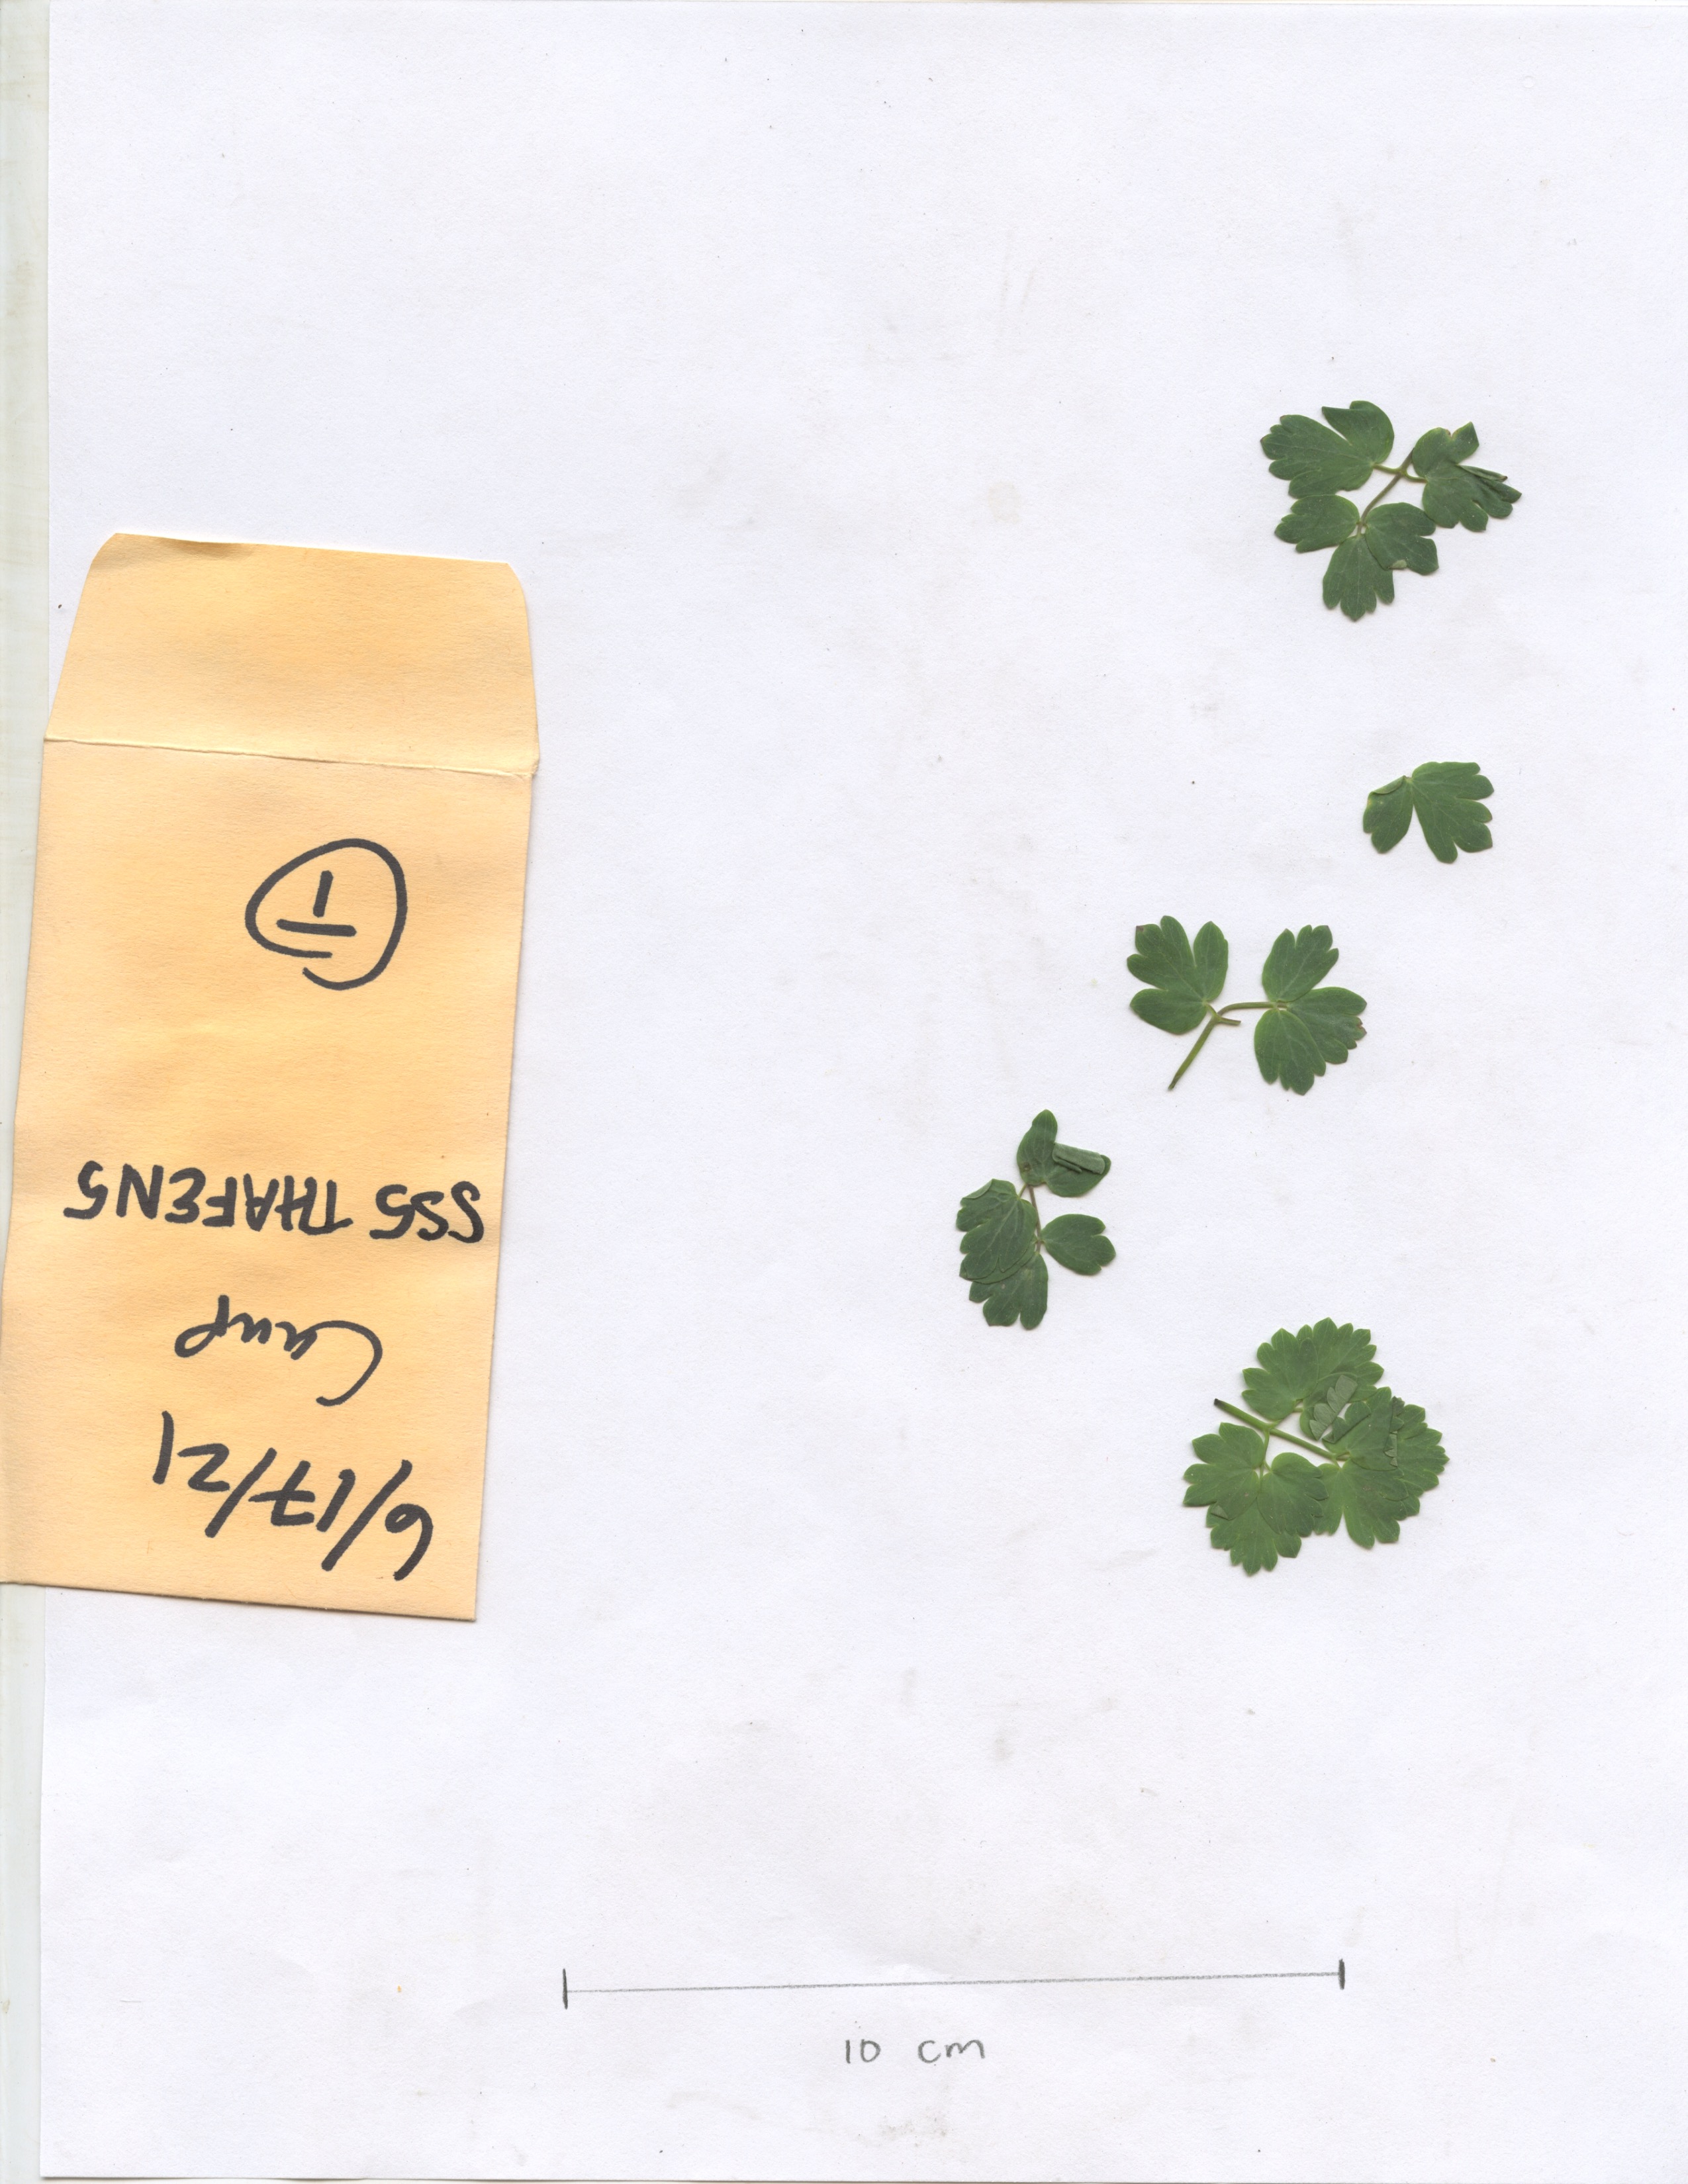 6/17/21
Camp
SS5 THAFEN5
T
10 cm